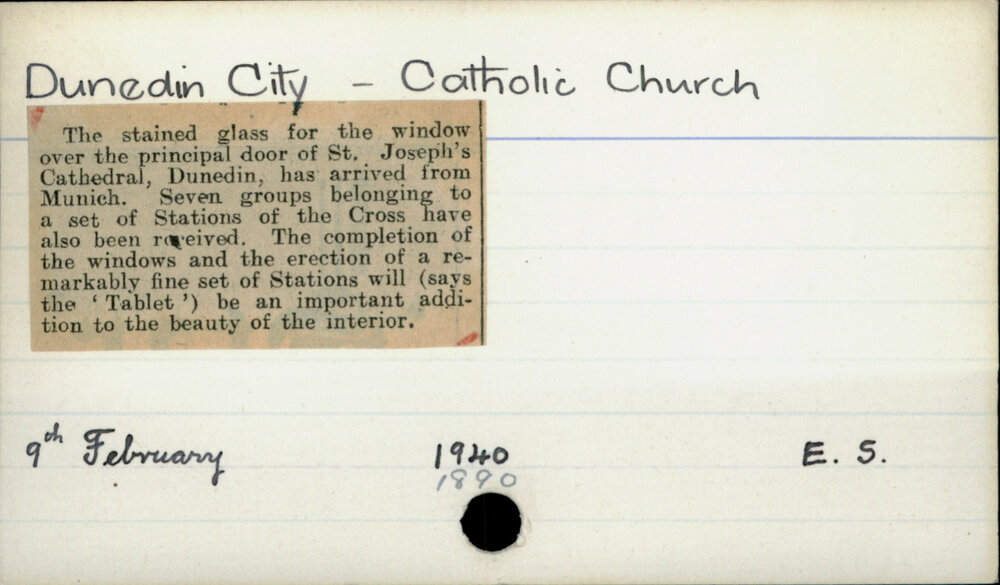 Dunedin City - Catholic Church
The stained glass for the window
over the principal door of St. Joseph's
Cathedral, Dunedin, has arrived from
Munich. Seven groups belonging to
a set of Stations of the Cross have
also been received. The completion of
the windows and the erection of a re-
markably fine set of Stations will (says
the 'Tablet') be an important addi-
tion to the beauty of the interior.
9th February 1940 E. S.
1890